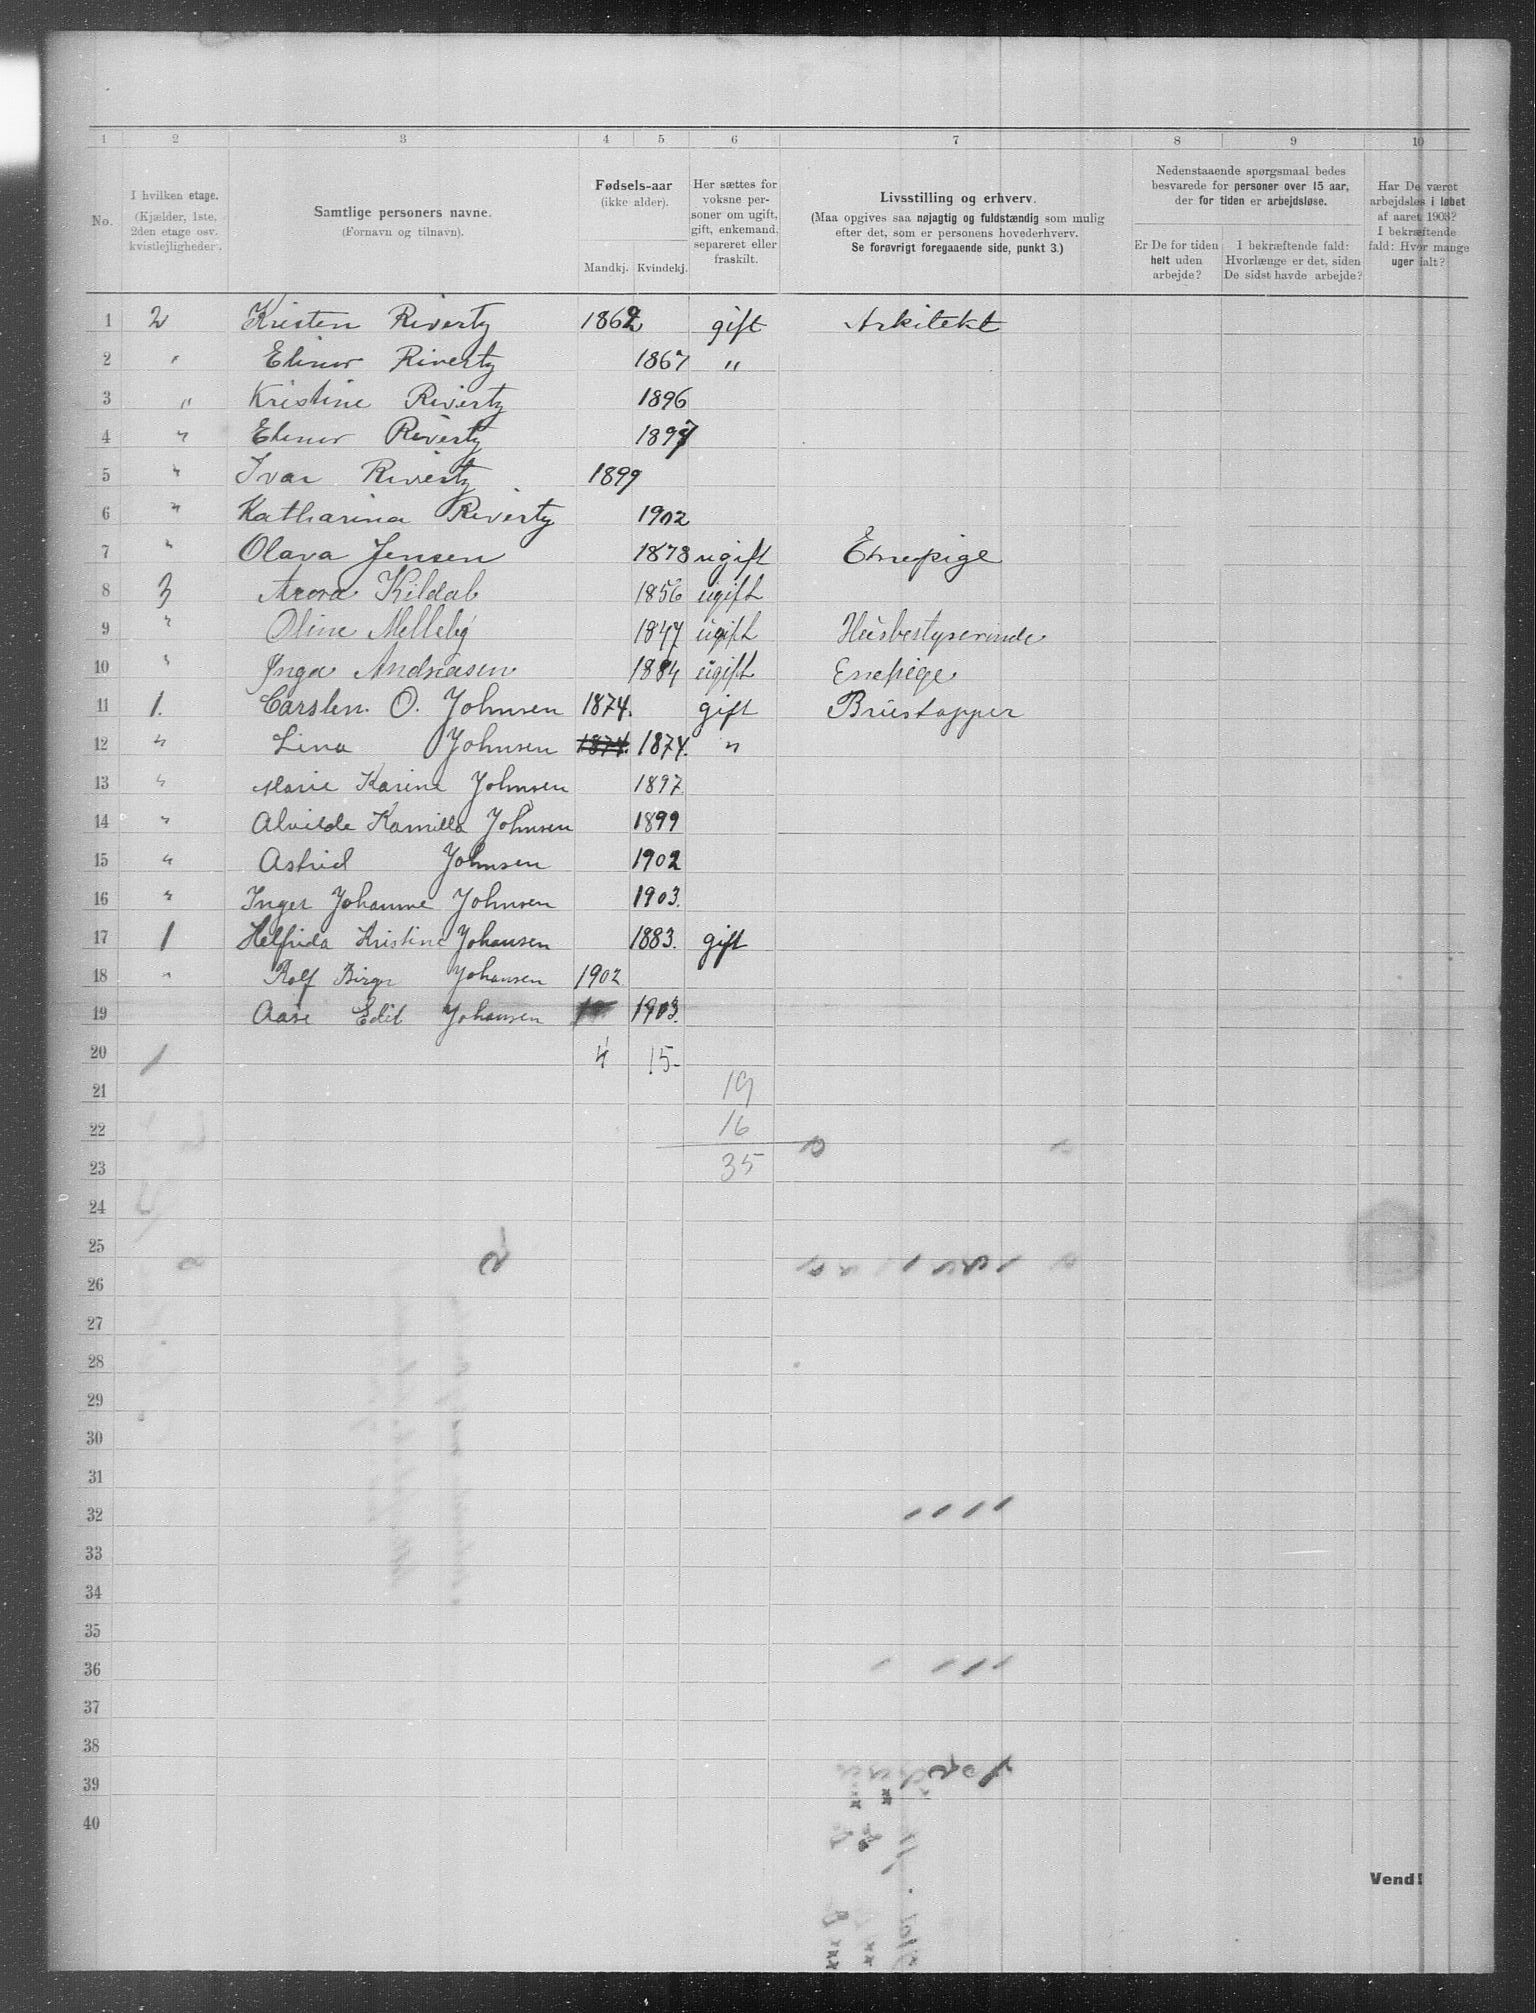 1 2 3 4 5 6 7 8 9 10
No.
I hvilken etage.
(Kjælder, 1ste,
2den etage osv.
kvistlejligheder.
Samtlige personers navne.
(Fornavn og tilnavn).
Fødsels-aar
(ikke alder).
Mandkj. Kvindekj.
Her sættes for
voksne per-
soner om ugift,
gift, enkemand,
separeret eller
fraskilt.
Livsstilling og erhverv.
(Maa opgives saa nøjagtig og fuldstændig som mulig
efter det, som er personens hovederhverv.
Se forøvrigt foregaaende side, punkt 3.)
Nedenstaaende spørgsmaal bedes
besvarede for personer over 15 aar,
der for tiden er arbejdsløse.
Er De for tiden
helt uden
arbejde?
I bekræftende fald:
Hvorlænge er det, siden
De sidst havde arbejde?
Har De været
arbejdsløs i løbet
af aaret 1903?
I bekræftende
fald: Hvor mange
uger ialt?
1 2 Kristen Rivertz 1862 gift Arkitekt
2 " Elinor Rivertz 1867 "
3 " Kristine Rivertz 1896
4 " Elinor Rivertz 1897
5 " Ivar Rivertz 1899
6 " Katharina Rivertz 1902
7 " Olava Jensen 1878 ugift Enepige
8 3 Kildal 1856 ugift
9 " Oline Melleby 1847 ugift Husbestyrerinde
10 " Inga Andreasen 1884 ugift Enepige
11 1. Carsten O. Johnsen 1874. gift Brustapper
12 " Lina Johnsen 1874. 1874. "
13 " Marie Karine Johnsen 1897
14 " Alvilde Kamilla Johnsen 1899
15 " Astrid Johnsen 1902
16 " Inger Johanne Johnsen 1903.
17 1 Helfrida Kristine Johansen 1883. gift
18 " Rolf Birger Johansen 1902
19 Aase Edit Johansen 1903.
20 1 4 15-
21 19
22 16
23 35
24
25
26
27
28
29
30
31
32
33
34
35
36
37
38
39
40
Vend!